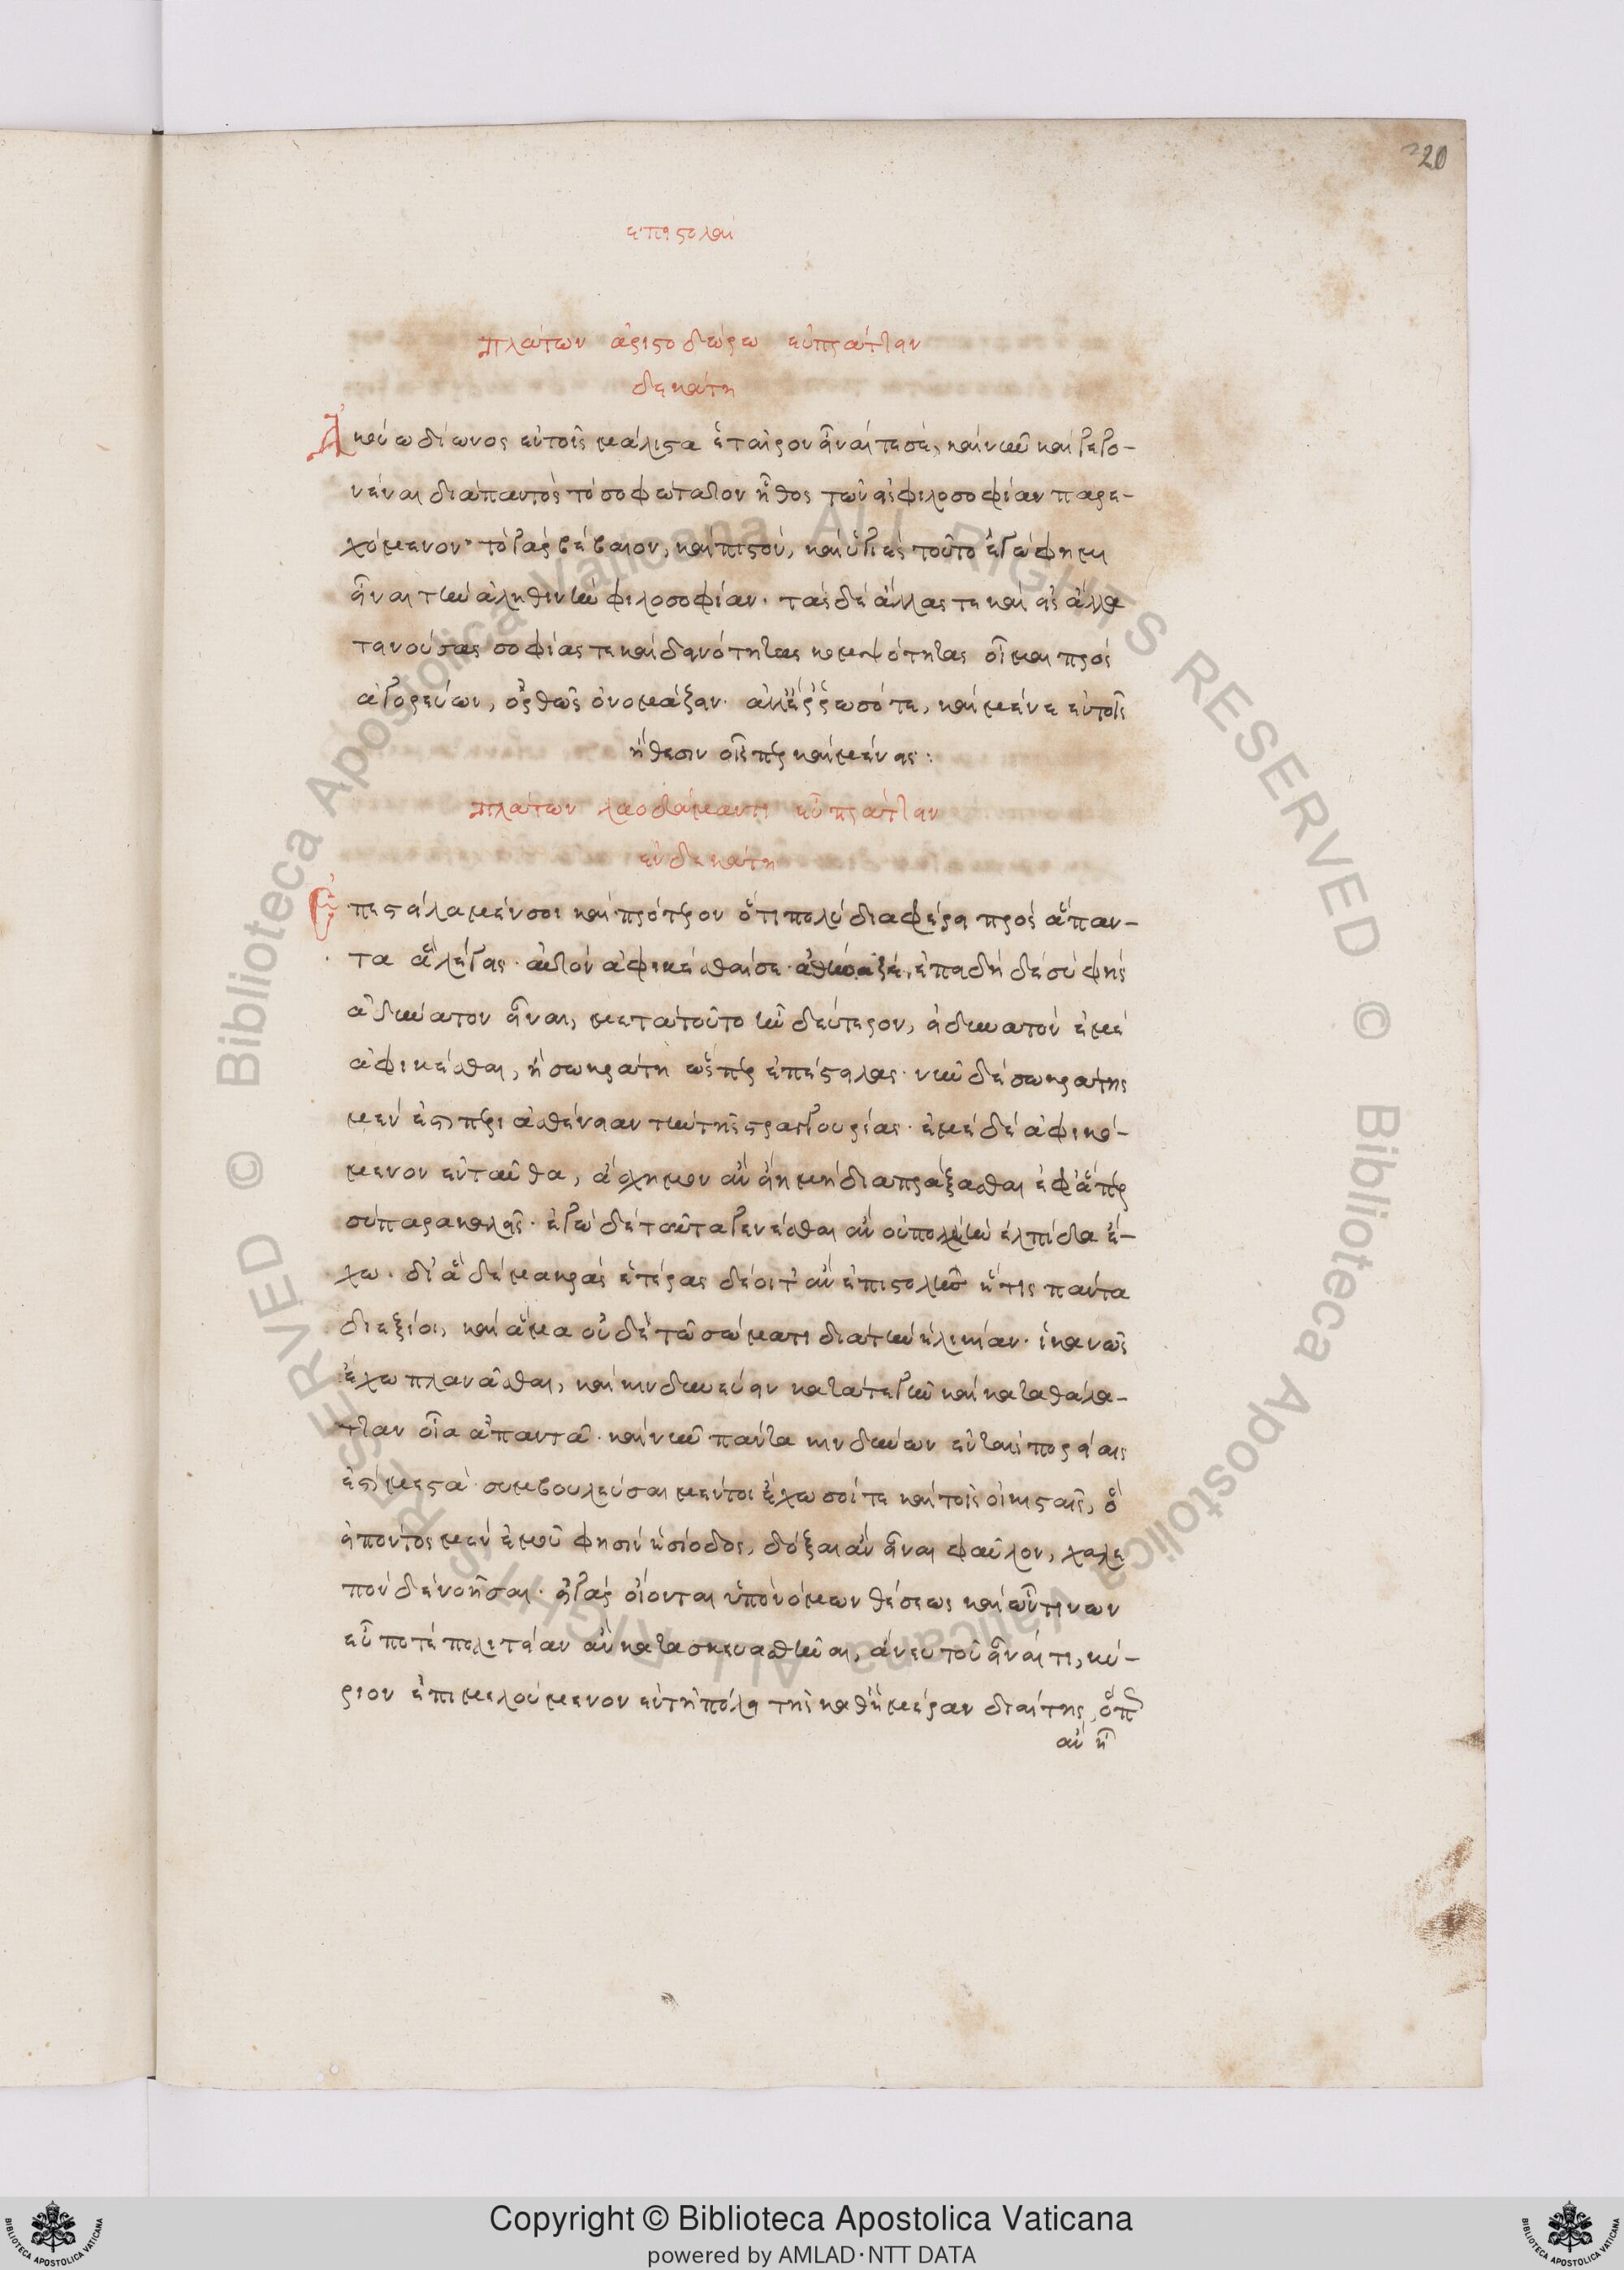 20
ἐπιστολαὶ
Πλάτων ἀριστοδώρω εὐπράττειν
δεκάτη
Ἀκούω δίωνος ἐν τοῖς μάλιστα ἑταῖρον εἶναί τε σὲ, καὶ νῦν καὶ γεγο-
νέναι διαπαντὸς τὸ σοφώτατον ἦθος τῶν εἰς φιλοσοφίαν παρε-
χόμενον· τὸ γὰρ βέβαιον, καὶ πιστὸν, καὶ ὑγιὲς τοῦτο ἐγώ φημι
εἶναι τὴν ἀληθινὴν φιλοσοφίαν· τὰς δὲ ἄλλας τε καὶ εἰς ἄλλα
τεινούσας σοφίας τε καὶ δεινότητας κομψότητας οἶμαι προσ
αγορεύων, ὀρθῶς ὀνομάζειν· ἀλλ' ἔρρωσό τε, καὶ μένε ἐν τοῖς
ἤθεσιν οἷσπερ καὶ μένεις:
Πλάτων λαοδάμαντι εὖ πράττειν
ἑνδεκάτη
Ἐπέστειλα μέν σοι καὶ πρότερον ὅτι πολὺ διαφέρει πρὸς ἅπαν-
τα ἃ λέγεις· αὐτὸν ἀφικέσθαι σε ἀθήναζε, ἐπειδὴ δὲ σὺ φῂς
ἀδύνατον εἶναι, μετὰ τοῦτο ἦν δεύτερον, εἰ δυνατὸν ἐμὲ
ἀφικέσθαι, ἢ σωκράτη ὥσπερ ἐπέστειλας· νῦν δὲ σωκράτης
μέν ἐστι περὶ ἀσθένειαν τὴν τῆς στραγγουρίας· ἐμὲ δὲ ἀφικό-
μενον ἐνταῦθα, ἄσχημον ἂν εἴη μὴ διαπράξασθαι ἐφ' ἅπερ
σὺ παρακαλεῖς· ἐγὼ δὲ ταῦτα γενέσθαι ἂν οὐ πολλὴν ἐλπίδα ἔ-
χω· δι' ἃ δὲ μακρᾶς ἑτέρας δέοιτ' ἂν ἐπιστολῆς ἥτις πάντα
διεξίοι, καὶ ἅμα οὐδὲ τῶ σώματι διὰ τὴν ἡλικίαν· ἱκανῶς
ἔχω πλανᾶσθαι, καὶ κινδυνεύειν κατά τε γῆν καὶ κατὰ θάλα-
τταν οἷα ἀπαντᾶ· καὶ νῦν πάντα κινδύνων ἐν ταῖς πορείαις
ἐστὶ μεστά· συμβουλεῦσαι μέντοι ἔχω σοί τε καὶ τοῖς οἰκισταῖς, ὃ
εἰπόντος μὲν ἐμοῦ φησὶν ἡσίοδος, δόξαι ἂν εἶναι φαῦλον, χαλε
πὸν δὲ νοῆσαι· εἰ γὰρ οἴονται ὑπὸ νόμων θέσεως καὶ ὧντινων
εὖ ποτὲ πολιτείαν ἂν κατασκευασθῆναι, ἄνευ τοῦ εἶναί τι, κύ-
ριον ἐπιμελούμενον ἐν τῆ πόλει τῆς καθ' ἡμέραν διαίτης, ὅπως
ἂν ἦ
Copyright © Biblioteca Apostolica Vaticana
powered by AMLAD·NTT DATA